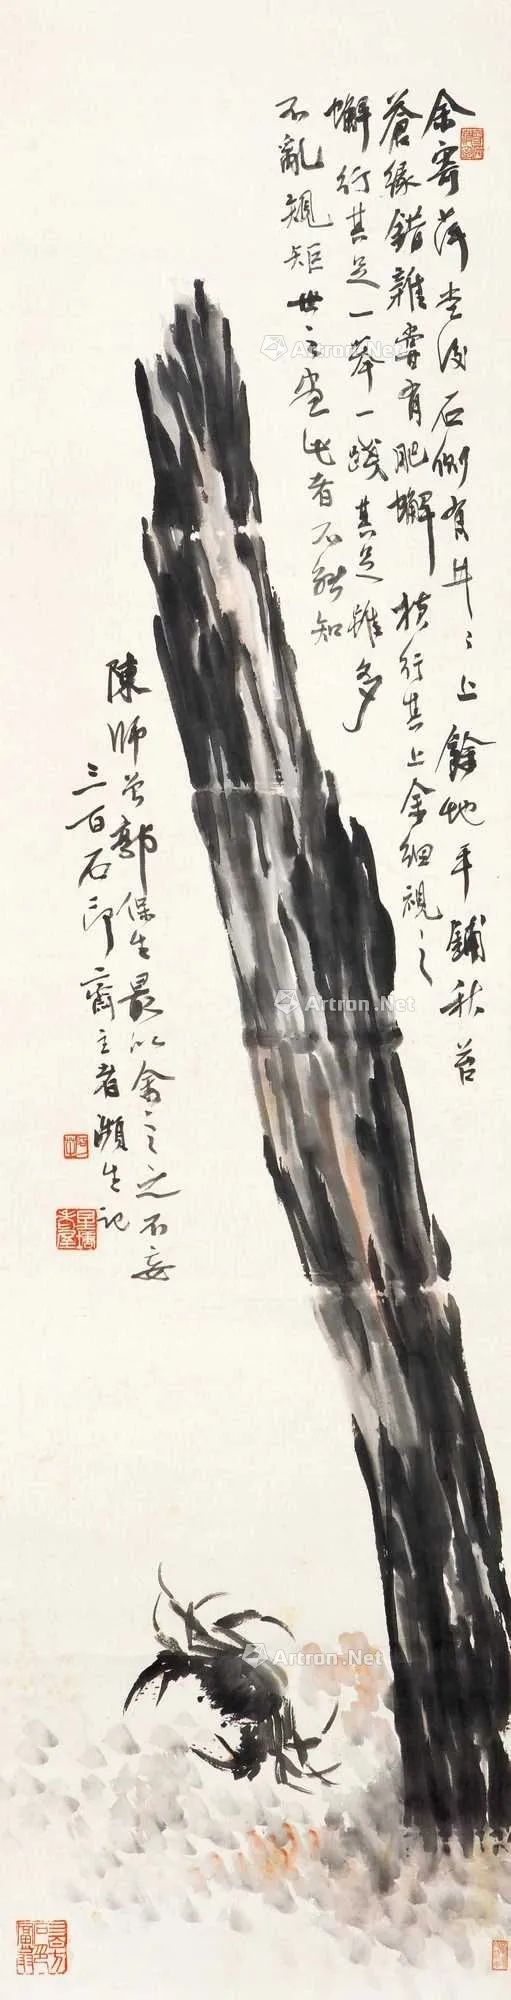 余寄萍堂後石側有井＝上餘地平鋪秋苔
蒼綠錯雜嘗有肥蟹橫行其上余細視＝
蟹行其足一舉一踐其足雖多
不亂規矩世之畫此者不能知
陳師曾郭葆生最以余言之不妄
三百石印齋主者瀕生記
Artron.Net
Artron.Net
Artron.Net